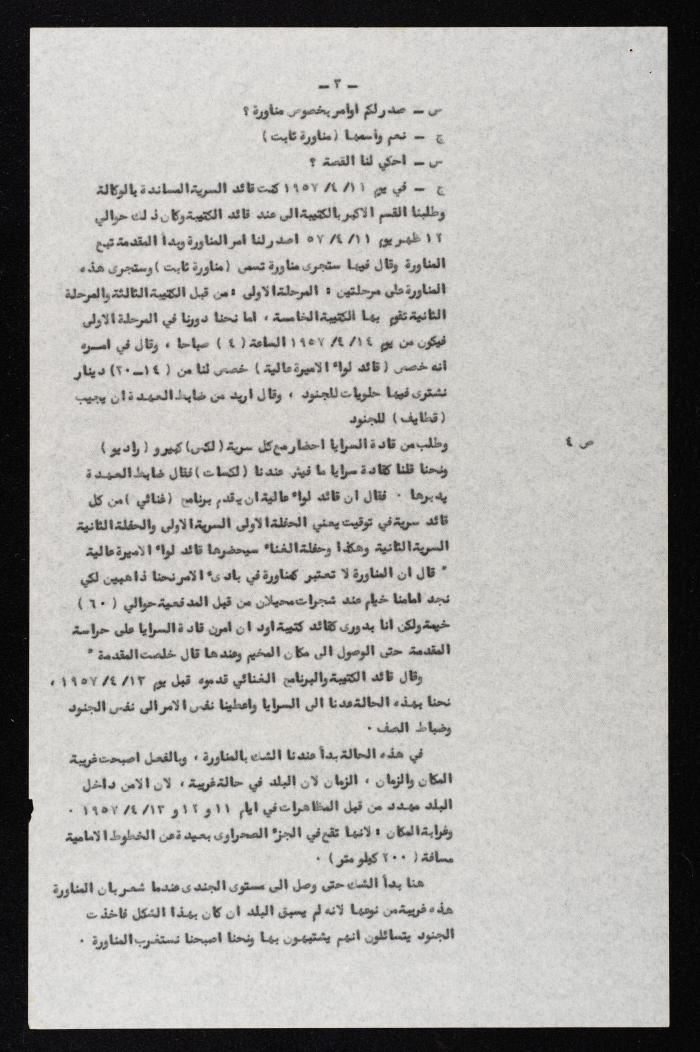 ـ ٣ ـ
س ـ صدر لكم اوامر بخصوص مناورة ؟
ج ـ نعم واسمها (مناورة ثابت)
س ـ احكي لنا القصة ؟
ج ـ في يوم ١١/ ٤/ ١٩٥٧ كنت قائد السرية المساندة بالوكالة
وطلبنا القسم الاكبر بالكتيبة الى عند قائد الكتيبة وكان ذلك حوالي
١٢ ظهر يوم ١١/ ٤/ ٥٧ اصدر لنا امر المناورة وبدأ المقدمة تبع
المناورة وقال فيها ستجرى مناورة تسمى (مناورة ثابت) وستجرى هذه
المناورة على مرحلتين : المرحلة الاولى : من قبل الكتيبة الثالثة والمرحلة
الثانية تقوم بها الكتيبة الخامسة ، اما نحنا دورنا في المرحلة الاولى
فيكون من يوم ١٤/ ٤/ ١٩٥٧ الساعة (٤) صباحا ، وقال في امره
انه خصص (قائد لواء الاميرة عالية) خصص لنا من (١٤ـ٢٠) دينار
نشترى فيها حلويات للجنود ، وقال اريد من ضابط العهدة ان يجيب
(قطايف) للجنود
وطلب من قادة السرايا احضار مع كل سرية (لكس) كبير و (راديو)
ص ٤
ونحنا قلنا كقادة سرايا ما فيش عندنا (لكسات) فقال ضابط العهدة
يدبرها . فقال ان قائد لواء عالية ان يقدم برنامج (غنائي) من كل
قائد سرية في توقيت يعني الحفلة الاولى السرية الاولى والحفلة الثانية
السرية الثانية وهكذا وحفلة الغناء سيحضرها قائد لواء الاميرة عالية
" قال ان المناورة لا تعتبر كمناورة في بادىء الامر نحنا ذاهبين لكي
نجد امامنا خيام عند شجرات محيلان من قبل المدفعية حوالي (٦٠)
خيمة ولكن انا بدورى كقائد كتيبة اود ان امرن قادة السرايا على حراسة
المقدمة حتى الوصول الى مكان المخيم وعندها قال خلصت المقدمة "
وقال قائد الكتيبة والبرنامج الغنائي قدموه قبل يوم ١٣/ ٤/ ١٩٥٧ ،
نحنا بهذه الحالة عدنا الى السرايا واعطينا نفس الامر الى نفس الجنود
وضباط الصف .
في هذه الحالة بدأ عندنا الشك بالمناورة ، وبالفعل اصبحت غريبة
المكان والزمان ، الزمان لان البلد في حالة غريبة ، لان الامن داخل
البلد مهدد من قبل المظاهرات في ايام ١١ و ١٢ و ١٣/ ٤/ ١٩٥٧ .
وغرابة المكان : لانها تقع في الجزء الصحراوى بعيدة عن الخطوط الامامية
مسافة (٢٠٠ كيلو متر) .
هنا بدأ الشك حتى وصل الى مستوى الجندى عندما شعر بان المناورة
هذه غريبة من نوعها لانه لم يسبق البلد ان كان بهذا الشكل فاخذت
الجنود يتسائلون انهم يشتبهون بها ونحنا اصبحنا نستغرب المناورة .